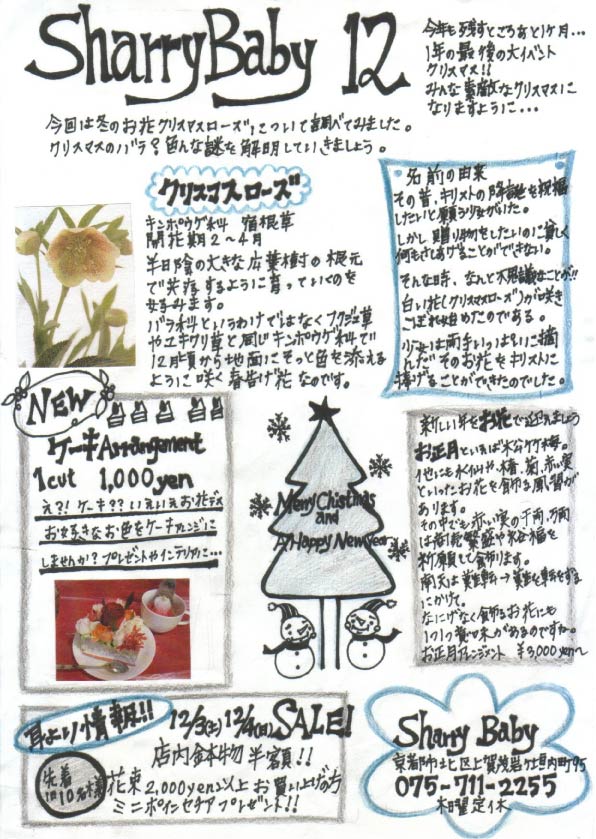 Sharry Baby 12
今年も残すところあと1ヶ月...
1年の最後の大イベント
クリスマス!!
みんな素敵なクリスマスに
なりますように...
今回は冬のお花クリスマスローズについて調べてみました。
クリスマスのバラ?色んな謎を解明していきましょう。
クリスマスローズ
キンポウゲ科 宿根草
開花期2〜4月
半日陰の大きな広葉樹の根元
で共存するように育っていくのを
好みます。
バラ科というわけではなくフクジュ草
やユキワリ草と同じキンポウゲ科で
12月頃から地面にそっと色を添える
ように咲く春告げ花なのです。
名前の由来
その昔、キリストの降誕を祝福
したいと願う少女がいた。
しかし贈り物をしたいのに貧しく
何もさしあげることができない。
そんな時、なんと不思議なことが!!
白い花(クリスマスローズ)が咲き
こぼれ始めたのである。
少女は両手いっぱいに摘
んだそのお花をキリストに
捧げることができたのでした。
NEW
ケーキArrangement
1cut 1,000yen
え?!ケーキ??いえいえお花デス
お好きなお色をケーキアレンジに
しませんか?プレゼントやインテリアに...
Merry Chistmas
and
A Happy Newyear
新しい年をお花で迎えましょう
お正月といえば松竹梅。
他にも水仙や、椿、菊、赤い実
といったお花を飾る風習が
あります。
その中でも赤い実の千両、万両
は商売繁盛や裕福を
祈願して飾ります。
南天は難転→難を転ずる
にかけて。
なにげなく飾るお花にも
1つ1つ意味があるのですね。
お正月アレンジメント ¥3,000yen〜
耳より情報!!
12/3(土)12/4(日)SALE!
店内鉢物半額!!
先着
1日10名様
花束2,000yen以上お買い上げの方
ミニポインセチアプレゼント!!
Sharry Baby
京都市北区上賀茂岩ヶ垣内町95
075-711-2255
木曜定休